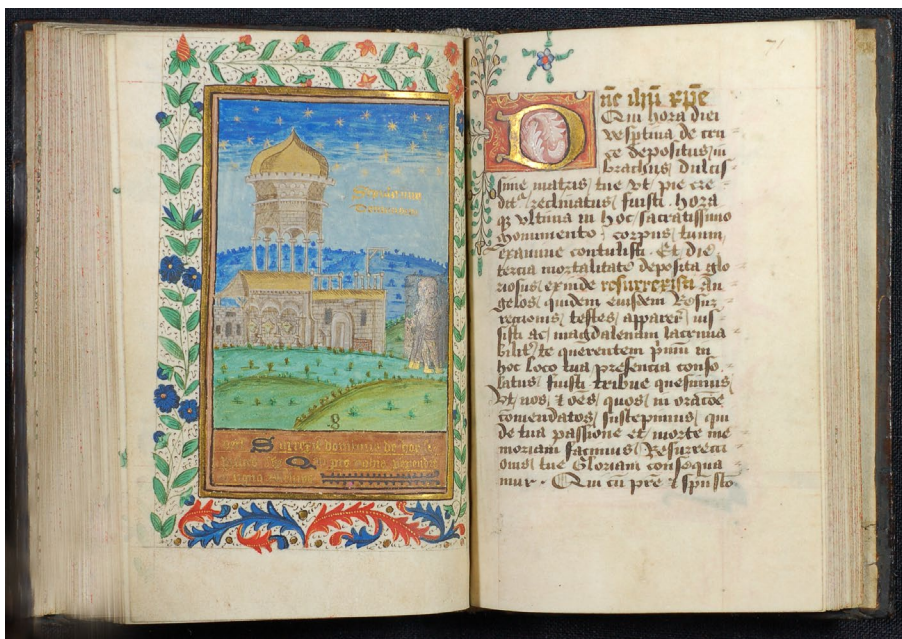 Surrexit dominus de hoc
Qui pro nobis pependit
71
Dne ihu xpe
Qui hora diei
vesptina de cru=
ce depositus in
brachiis dulcis=
sime matris tue vt pie cre=
ditr reclinatus fuisti. hora
qz vltima in hoc sacratissimo
monumento corpus tuum
exanime contulisti. Et die
tercia mortalitate deposita glo
riosus exinde resurrexisti An=
gelos quidem eiusdem Resur=
rectionis testes apparere ius=
sisti ac magdalenam lacrima
bilitr te querentem primu in
hoc loco tua presencia conso=
latus fuisti tribue quesumus
vt nos et oes quos in oracoe
comendatos suscepimus qui
de tua passione et morte me
moriam facimus Resurrecti
onis tue Gloriam consequa
mur. Qui cu pre et spu sto